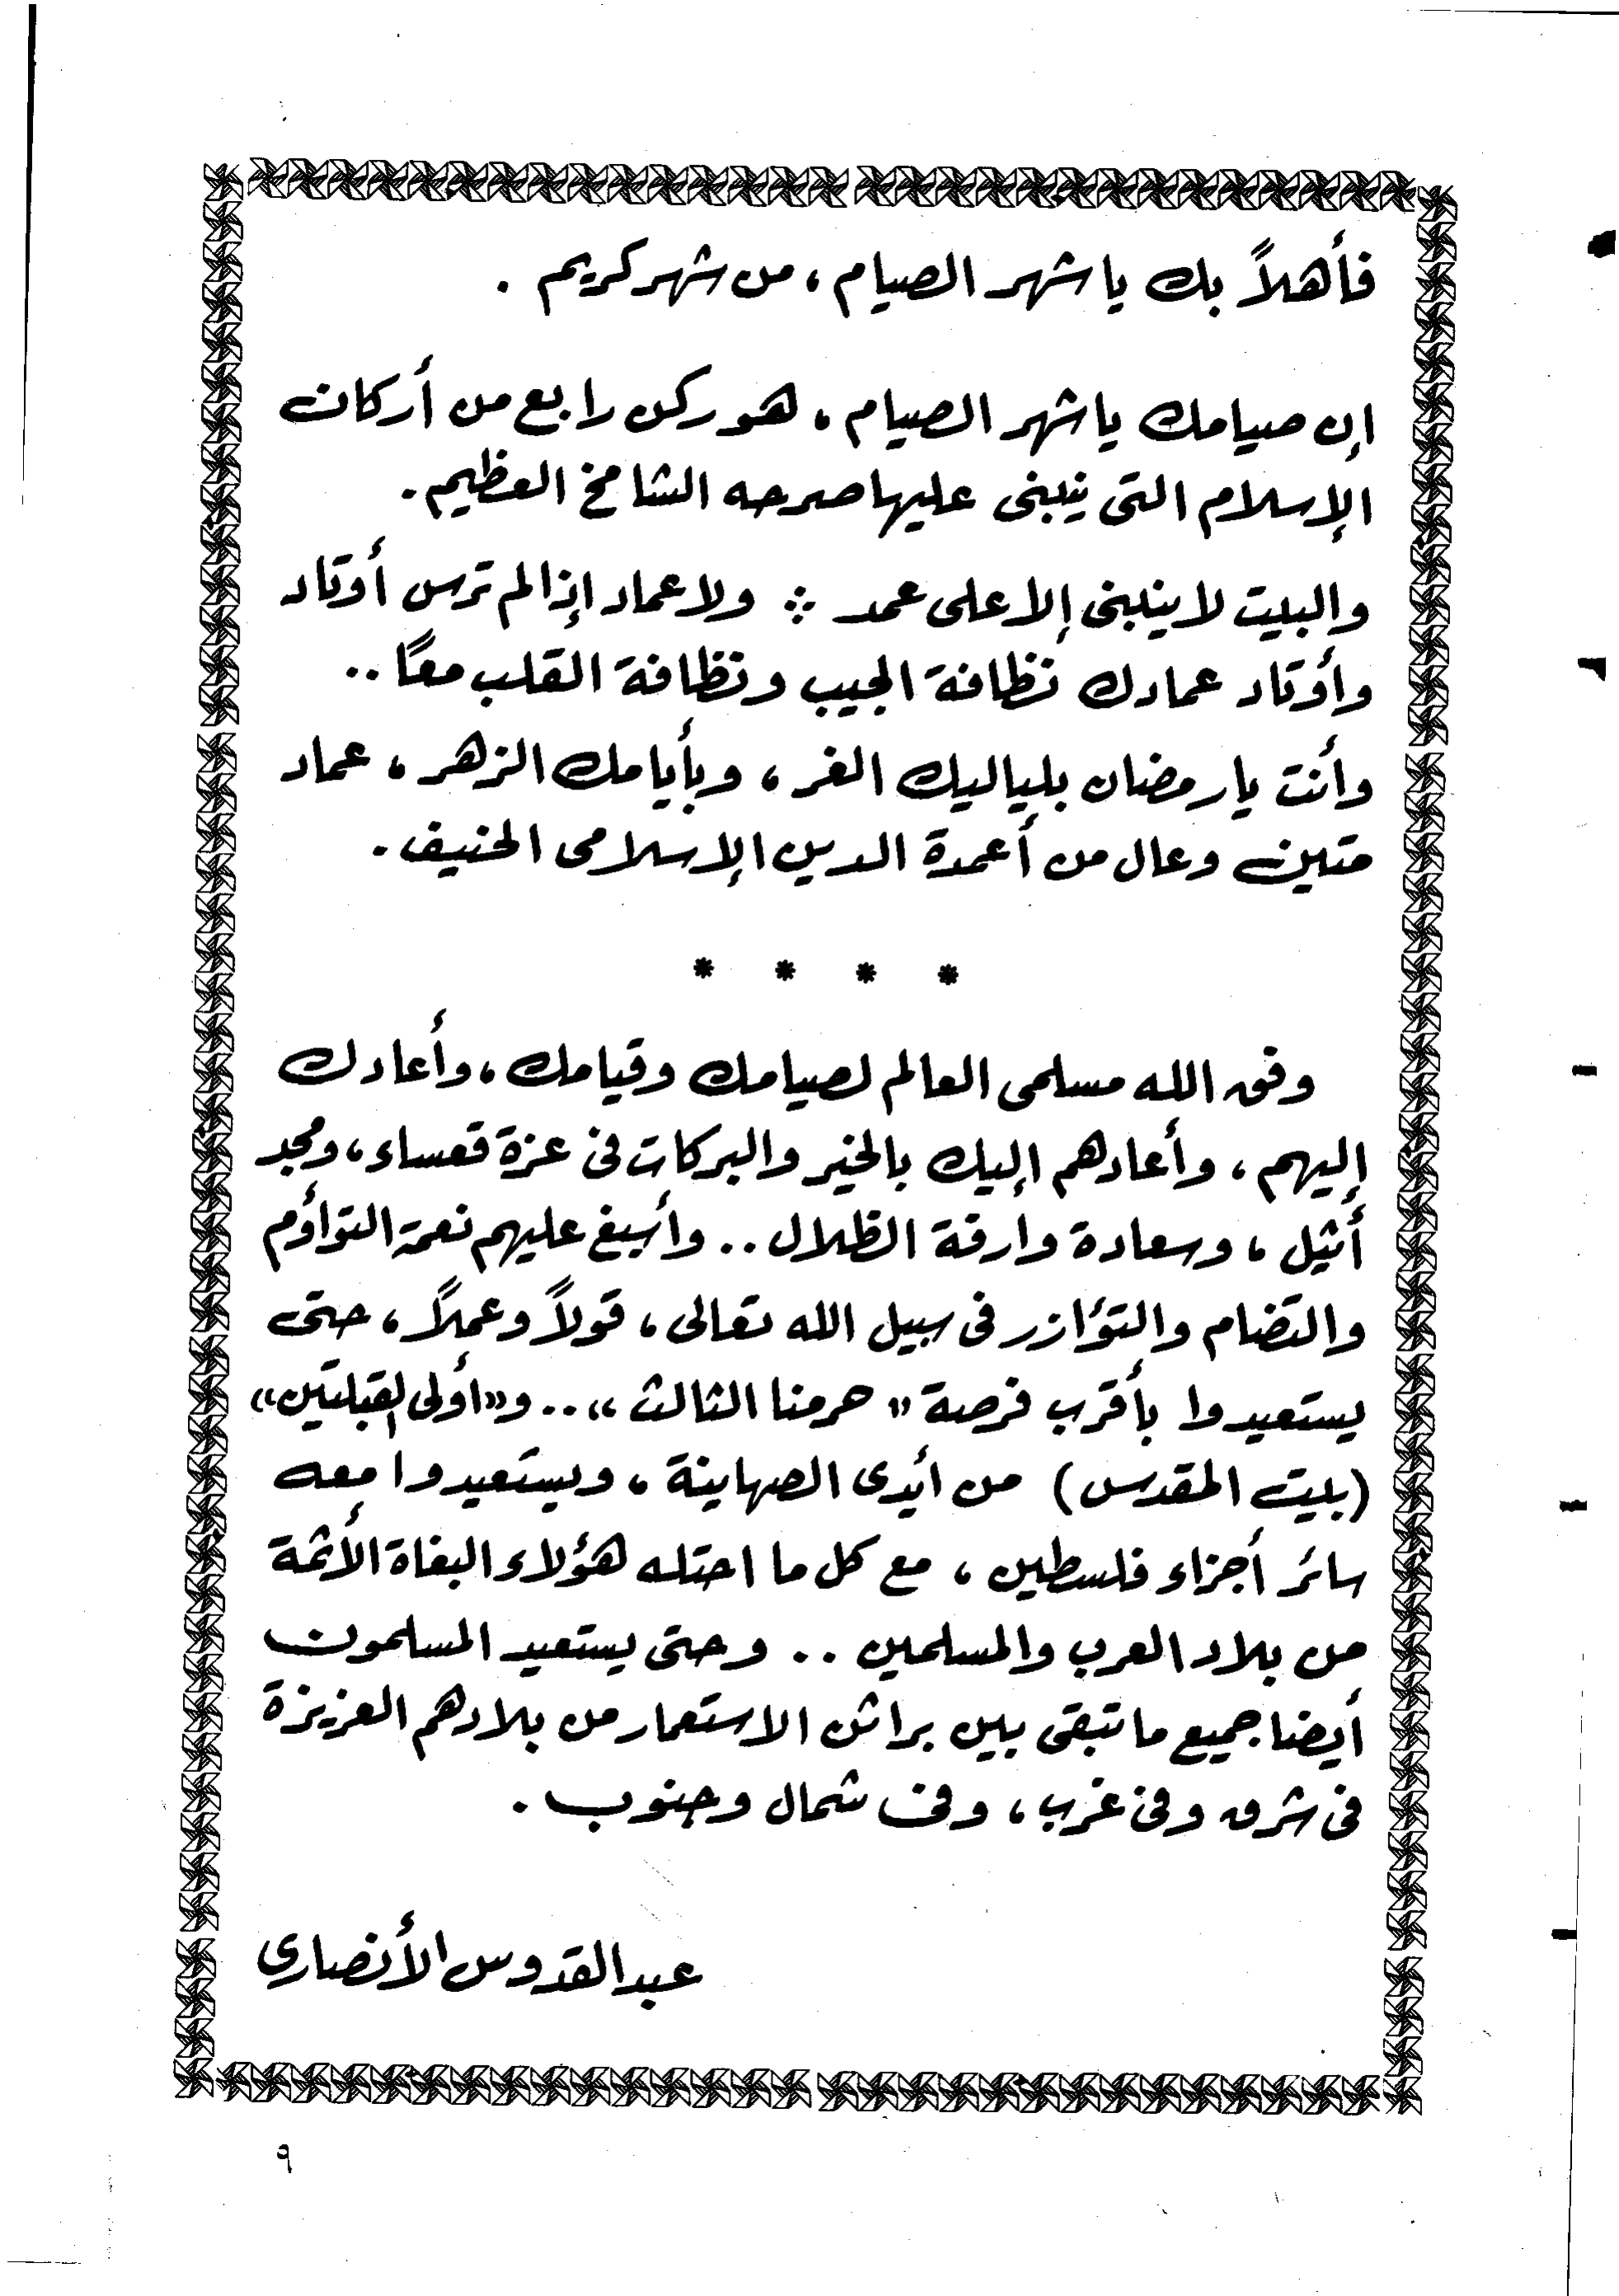 فأهلاً بك يا شهر الصيام ، من شهر كريم .
إن صيامك يا شهر الصيام ، هو ركن رابع من أركان
الإسلام التى ينبنى عليها صرحه الشامخ العظيم .
والبيت لا ينبنى إلا على عمد ∴ ولا عماد إذا لم ترس أوتاد
وأوتاد عمادك نظافة الجيب ونظافة القلب معًا ..
وأنت يا رمضان بلياليك الغر ، وبأيامك الزهر ، عماد
متين وعال من أعمدة الدين الإسلامى الحنيف .
* * * *
وفق الله مسلمى العالم لصيامك وقيامك ، وأعادك
إليهم ، وأعادهم إليك بالخير والبركات فى عزة قعساء ، ومجد
أثيل ، وسعادة وارفة الظلال .. وأسبغ عليهم نعمة التواؤم
والتضام والتؤازر فى سبيل الله تعالى ، قولاً وعملاً ، حتى
يستعيدوا بأقرب فرصة « حرمنا الثالث » .. و « أولى القبلتين »
( بيت المقدس ) من أيدى الصهاينة ، ويستعيدوا معه
سائر أجزاء فلسطين ، مع كل ما احتله هؤلاء البغاة الأثمة
من بلاد العرب والمسلمين .. وحتى يستعيد المسلمون
أيضا جميع ما تبقى بين براثن الاستعمار من بلادهم العزيزة
فى شرق وفى غرب ، وفى شمال وجنوب .
عبد القدوس الأنصاري
٩